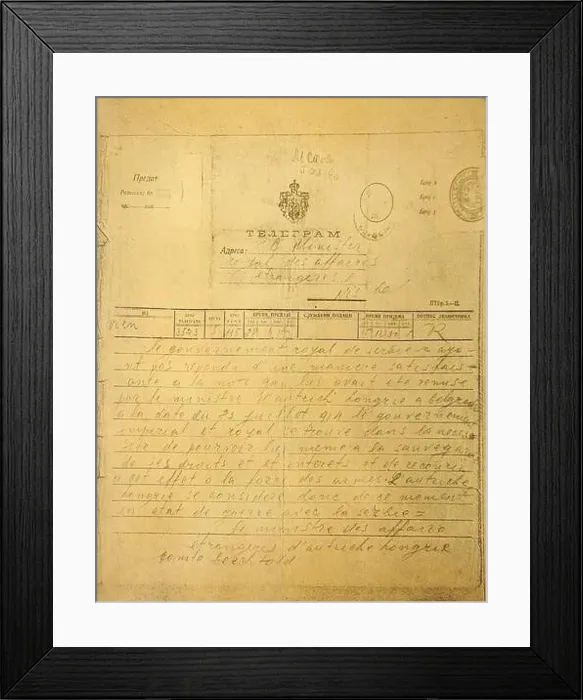 Предат
ТЕЛЕГРАМ
Адреса: Minister
royal des affaires
etrangeres
ИЗ
СЛУЖБЕНИ ПОДАЦИ
wien
3523
R
le gouvernement royal de serbie n ayant
pas repondu d une maniere satisfais
ante a la note qui lui avait ete remise
par le ministre d autrich hongrie a belgrade
a la date du 23 juillet 914 le gouvernement
imperial et royal se trouve dans la neces
site de pourvoir lui meme a la sauvegar
de ses droits et et interets et de recourir
a cet effet a la force des armes. L autriche
hongrie se considere donc de ce moment
en etat de guerre avec la serbie =
le ministre des affaire
etrangeres d'autriche hongrie
comte